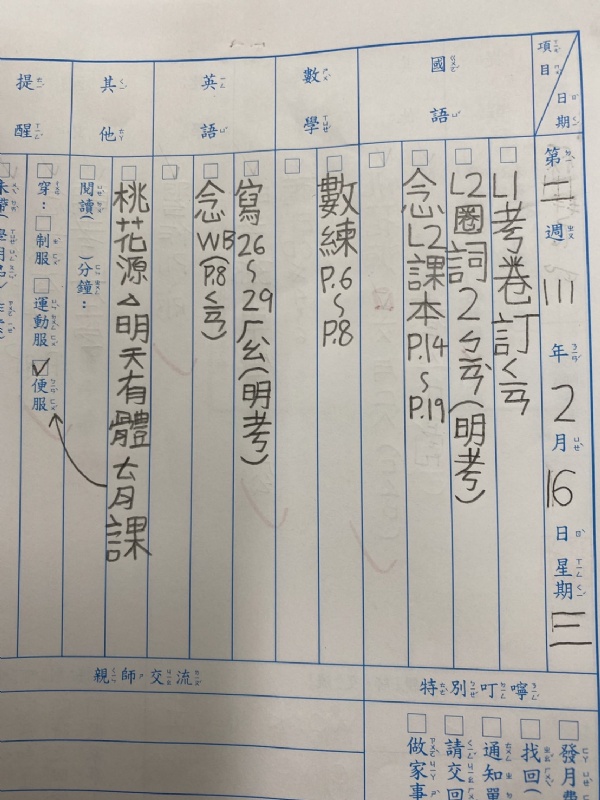 項目
日期
第二週 111年2月16日星期三
國語
L1考卷訂ㄑㄢ
L2圈詞2ㄘㄢˋ(明考)
念L2課本P.14~P.19
數學
數練P.6~P.8
英語
寫26~29ㄏㄠˋ(明考)
念WB(P.8ㄑㄢ)
其他
桃花源△明天有體ㄊㄞˊ課
閱讀( )分鐘:
提醒
穿:制服 運動服 便服
特別叮嚀
發月費
找回
通知單
請交回
做家事
親師交流